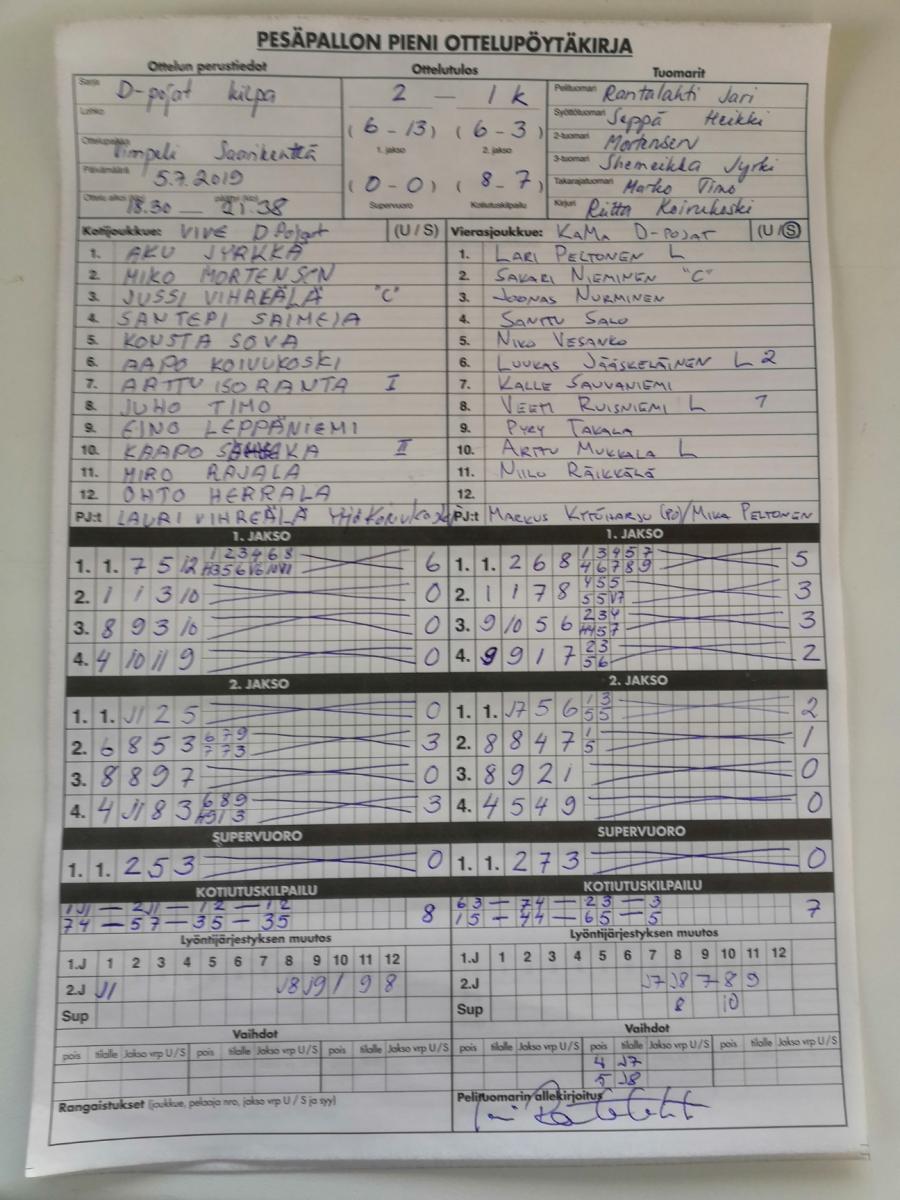 PESÄPALLON PIENI OTTELUPÖYTÄKIRJA
Ottelun perustiedot Ottelutulos Tuomarit
Sarja D-pojat kilpa
Lohko
Ottelupaikka Vimpeli Saarikenttä
Päivämäärä 5.7.2019
Ottelu alkoi (klo) 18.30 — päättyi (klo) 21.38
2 — 1 k
(6 - 13) (6 - 3)
1. jakso 2. jakso
(0 - 0) (8 - 7)
Supervuoro Kotiutuskilpailu
Pelituomari Rantalahti Jari
Syöttötuomari Seppä Heikki
2-tuomari Mortensen
3-tuomari Shemeikka Jyrki
Takarajatuomari Marko Timo
Kirjuri Riitta Koivukoski
Kotijoukkue: VIVE D Pojat (U / S)
1. AKU JYRKKÄ
2. MIKO MORTENSEN
3. JUSSI VIHREÄLÄ "C"
4. SANTERI SAIMEJA
5. KONSTA SOVA
6. AAPO KOIVUKOSKI
7. ARTTU ISORANTA I
8. JUHO TIMO
9. EINO LEPPÄNIEMI
10. KAAPO II
11. MIRO RAJALA
12. OHTO HERRALA
PJ:t LAURI VIHREÄLÄ
Vierasjoukkue: KAMA D-POJAT (U / S)
1. LARI PELTONEN L
2. SAKARI NIEMINEN "C"
3. JOONAS NURMINEN
4. SANTTU SALO
5. NIKO VESANKO
6. LUUKAS JÄÄSKELÄINEN L 2
7. KALLE SAUVANIEMI
8. VEETI RUISNIEMI L 1
9. PYRY TAKALA
10. ARTTU MUKKALA L
11. NIILO RÄIKKÄLÄ
12.
PJ:t MARKUS KYTÖHARJU (PJ) / MIKA PELTONEN
1. JAKSO
1. 1. 7 5 12 6
2. 1 1 3 10 0
3. 8 9 3 10 0
4. 4 10 11 9 0
2. JAKSO
1. 1. J1 2 5 0
2. 6 8 5 3 3
3. 8 8 9 7 0
4. 4 J1 8 3 3
SUPERVUORO
1. 1. 2 5 3 0
KOTIUTUSKILPAILU
1J1 — 2J1 — 12 — 12
74 — 57 — 35 — 35 8
1. JAKSO
1. 1. 2 6 8 5
2. 1 1 7 8 3
3. 9 10 5 6 3
4. 9 9 1 7 2
2. JAKSO
1. 1. J7 5 6 2
2. 8 8 4 7 1
3. 8 9 2 1 0
4. 4 5 4 9 0
SUPERVUORO
1. 1. 2 7 3 0
KOTIUTUSKILPAILU
63 — 74 — 23 — 3
15 — 44 — 65 — 5 7
Lyöntijärjestyksen muutos
1.J 1 2 3 4 5 6 7 8 9 10 11 12
2.J J1 J8 J9 1 9 8
Sup
Vaihdot
pois tilalle Jakso vrp U / S pois tilalle Jakso vrp U / S pois tilalle Jakso vrp U / S
Rangaistukset (joukkue, pelaaja nro, jakso vrp U / S ja syy)
Lyöntijärjestyksen muutos
1.J 1 2 3 4 5 6 7 8 9 10 11 12
2.J J7 J8 7 8 9
Sup 8 10
Vaihdot
pois tilalle Jakso vrp U / S pois tilalle Jakso vrp U / S pois tilalle Jakso vrp U / S
4 J7
5 J8
Pelituomarin allekirjoitus